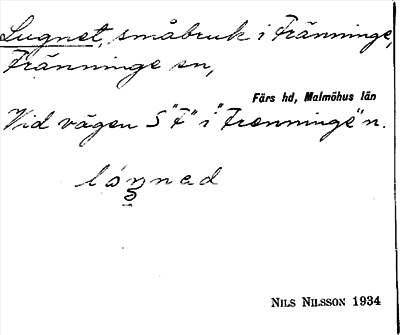 Lugnet, småbruk i Tränninge,
Fränninge sn,
Färs hd, Malmöhus län
Vid vägen S "F" i "Trænninge" n.
NILS NILSSON 1934